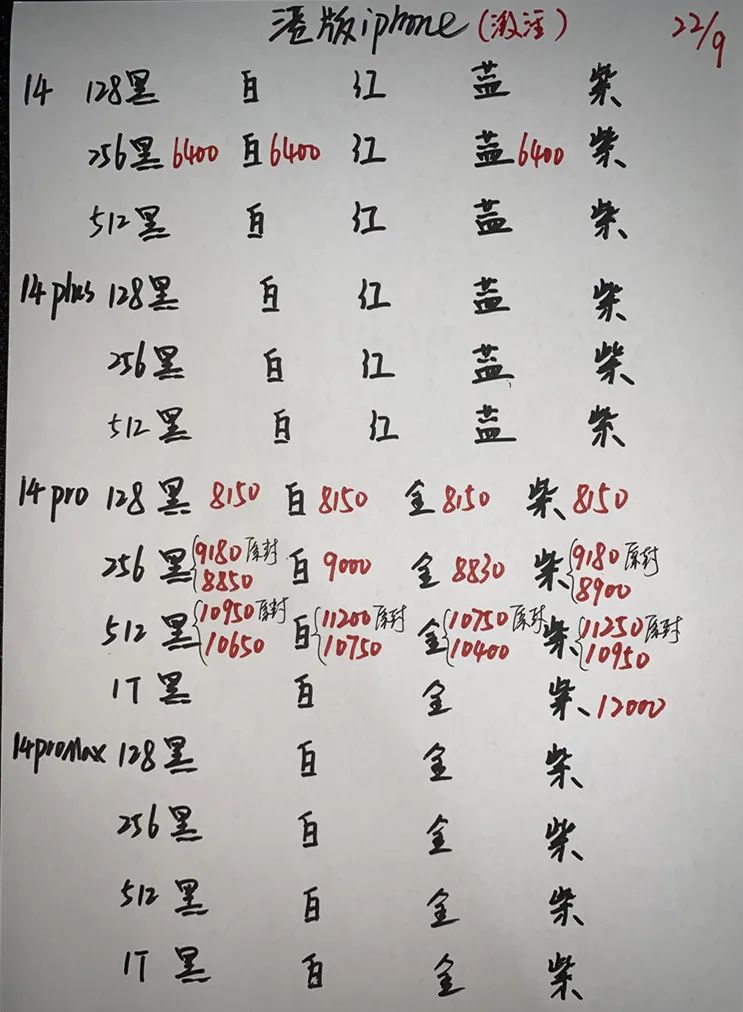 港版iphone(激活) 22/9
14 128黑 白 红 蓝 紫
256黑6400 白6400 红 蓝6400 紫
512黑 白 红 蓝 紫
14plus 128黑 白 红 蓝 紫
256黑 白 红 蓝 紫
512黑 白 红 蓝 紫
14pro 128黑 8150 白 8150 金 8150 紫 8150
256 黑 9180原封 白 9000 金 8830 紫 9180原封
8850 8900
512 黑 10950原封 白 11200原封 金 10750原封 紫 11250原封
10650 10750 10400 10950
1T 黑 白 金 紫 12000
14promax 128黑 白 金 紫
256黑 白 金 紫
512 黑 白 金 紫
1T 黑 白 金 紫